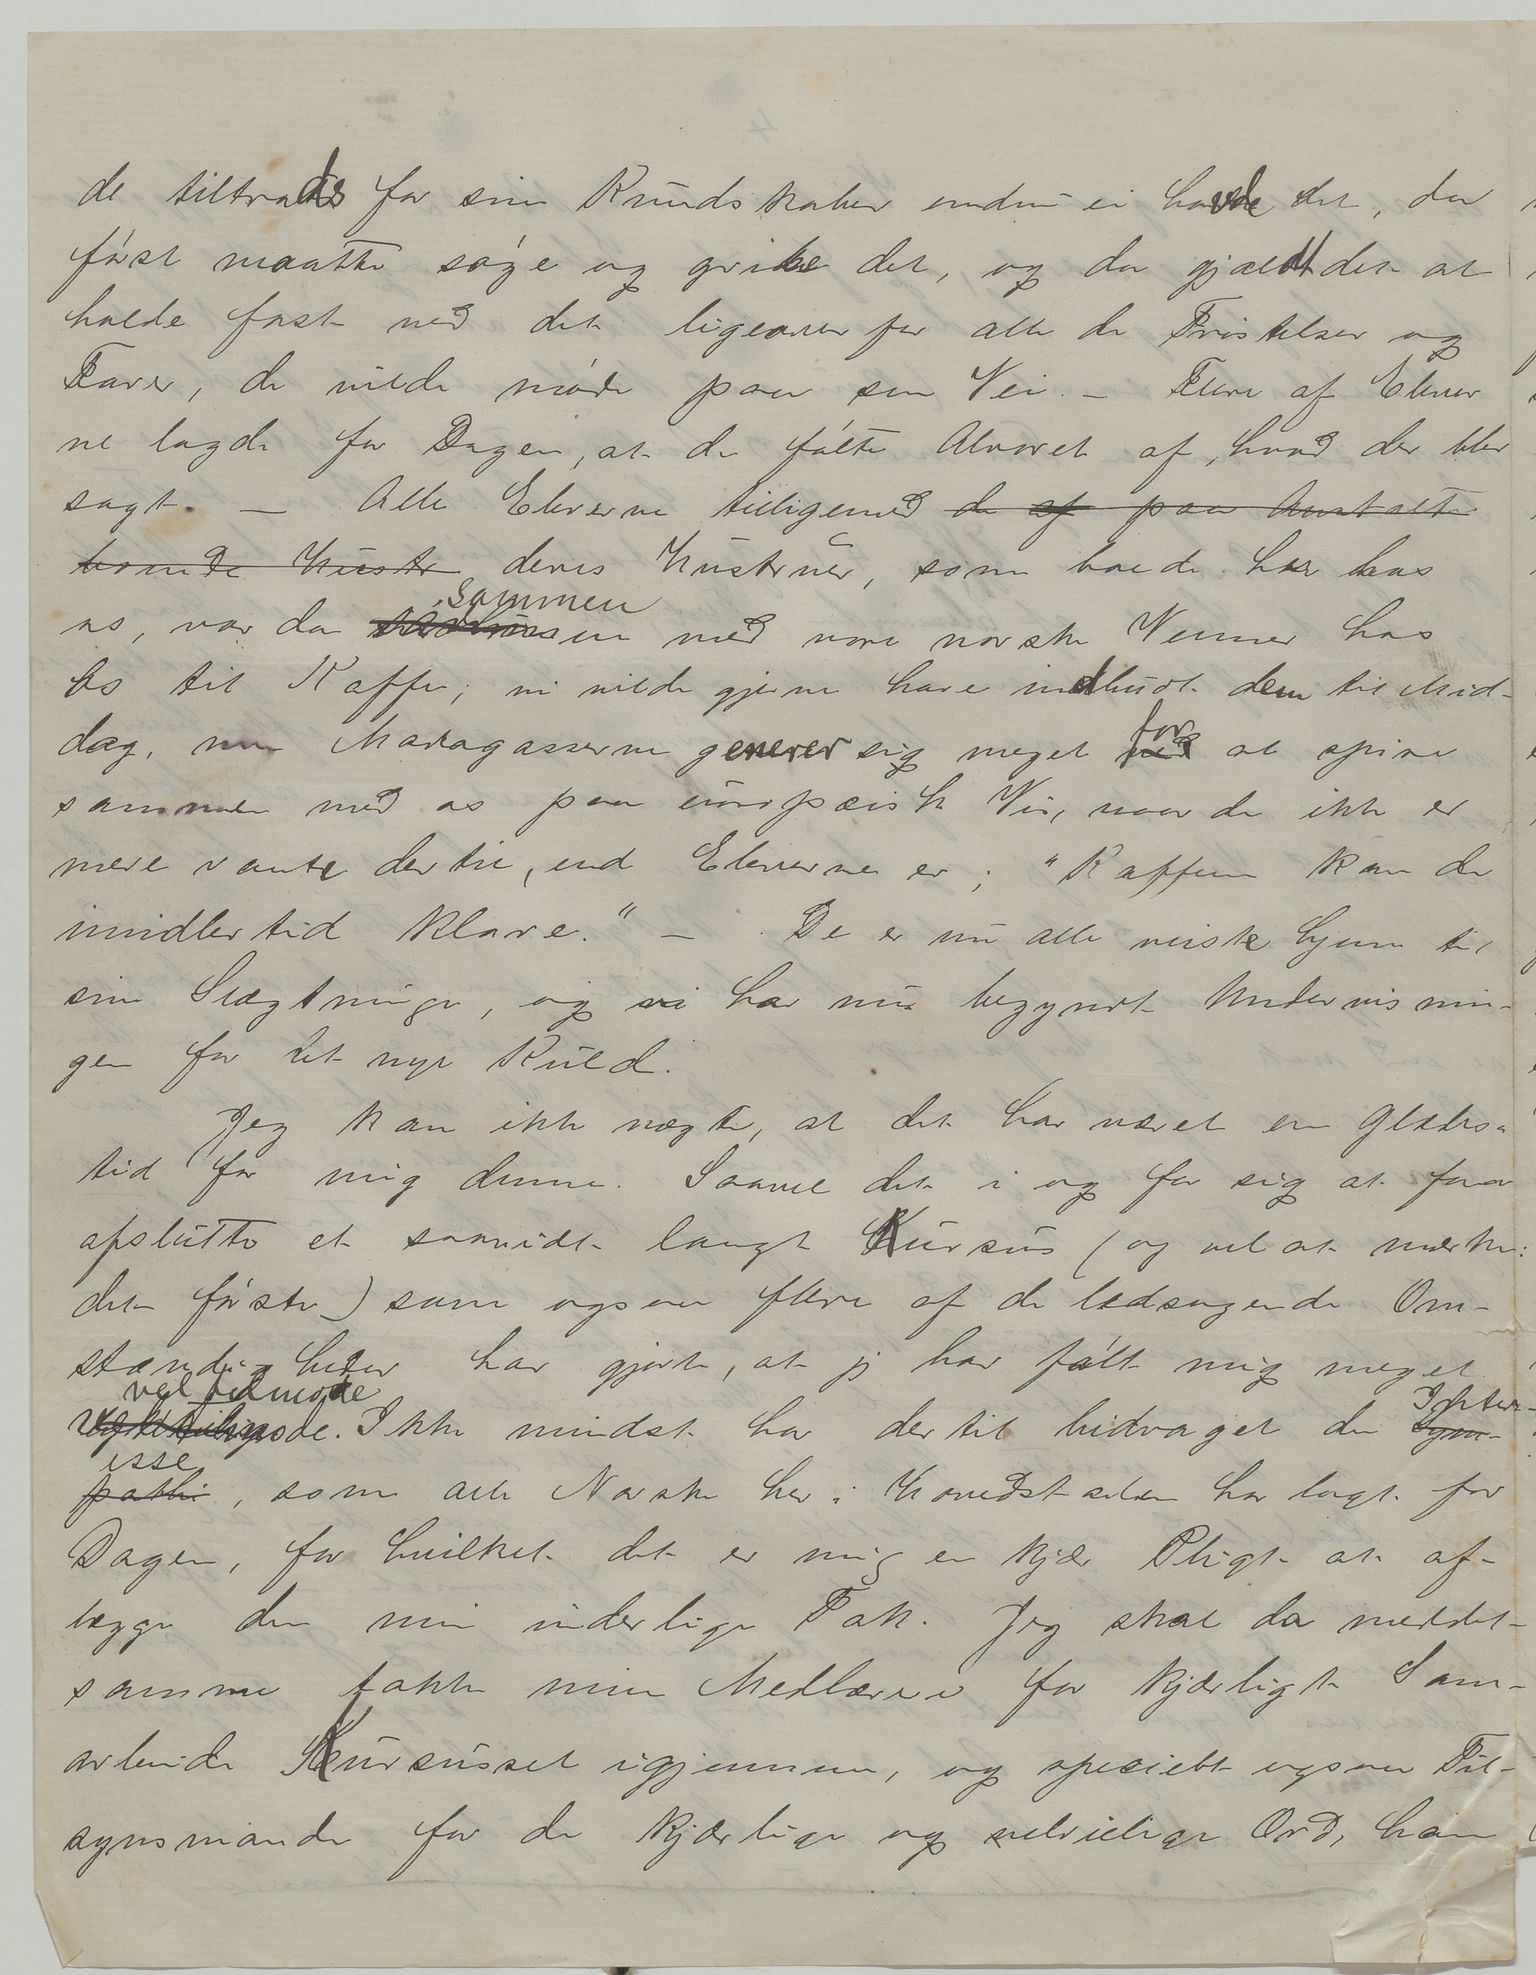 de tiltrods for sine Kundskaber endnu ei havde det, da
först maatte söge og gribe det, og da gjældt det at
holde fast ved det ligeover for alle de Fristelser og
Farer, de vilde möde paa sin Vei. – Flere af Elever
ne lagde for Dagen, at de fölte Alvoret af, hvad der blev
sagt. – Alle Eleverne tilligemed de af paa Anstalten
boende Hustr deres Hustruer, som boede her hos
os, var da sammen med vore norske Venner hos
os til Kaffe; vi vilde gjerne have indbudt dem til Mid-
dag, men Madagasserne generer sig meget for at spise
sammen med os paa europæisk Vis, naar de ikke er
mere vante dertil, end Eleverne er; "Kaffeen kan de
imidlertid klare." – De er nu alle reiste hjem til
sine Slægtninge, og vi har nu begyndt Undervisnin-
gen for det nye Kuld.
Jeg kan ikke nægte, at det har været en Glædes-
tid for mig denne. Saavel det i og for sig at faa
afslutte et saavidt langt Kursus (og vel at mærke:
det förste) som ogsaa flere af de ledsagende Om-
stændigheder har gjort, at jeg har fölt mig meget
vel tilmode. Ikke mindst har dertil bidraget den Sym- Inter-
pathi esse, som alle Norske her i Hovedstaden har lagt for
Dagen, for hvilket det er mig en kjær Pligt at af-
lægge dem min inderlige Tak. Jeg skal da meddet-
samme takke mine Medlærere for kjærligt Sam-
arbeide Kursusset igjennem, og specielt ogsaa Til-
synsmanden for de kjærlige og velvillige Ord, han